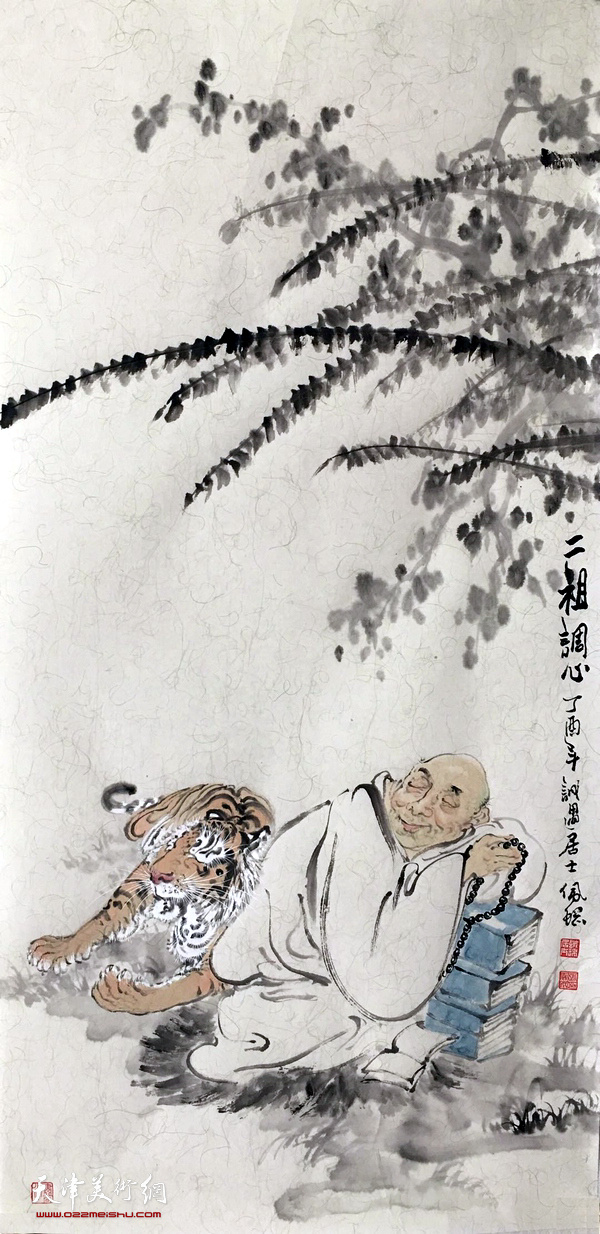 二祖調心 丁酉年 誠周居士 佩璁
天津美術網
www.022meishu.com